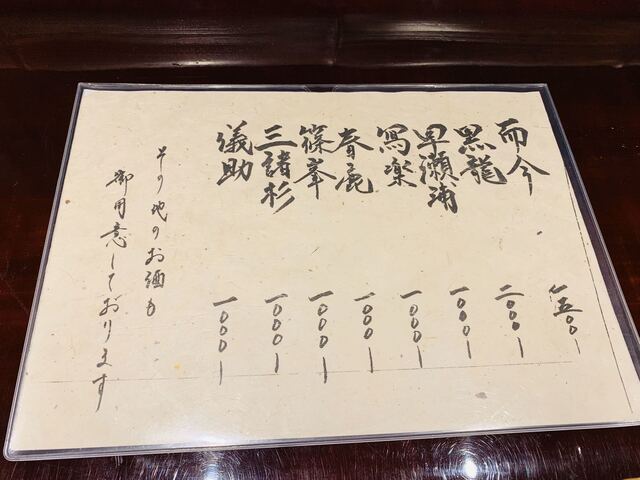 而今 一五〇〇ー
黒龍 二〇〇〇ー
早瀬浦 一〇〇〇ー
冩楽 一〇〇〇ー
春鹿 一〇〇〇ー
篠峯 一〇〇〇ー
三諸杉 一〇〇〇ー
儀助 一〇〇〇ー
その他のお酒も
御用意しております